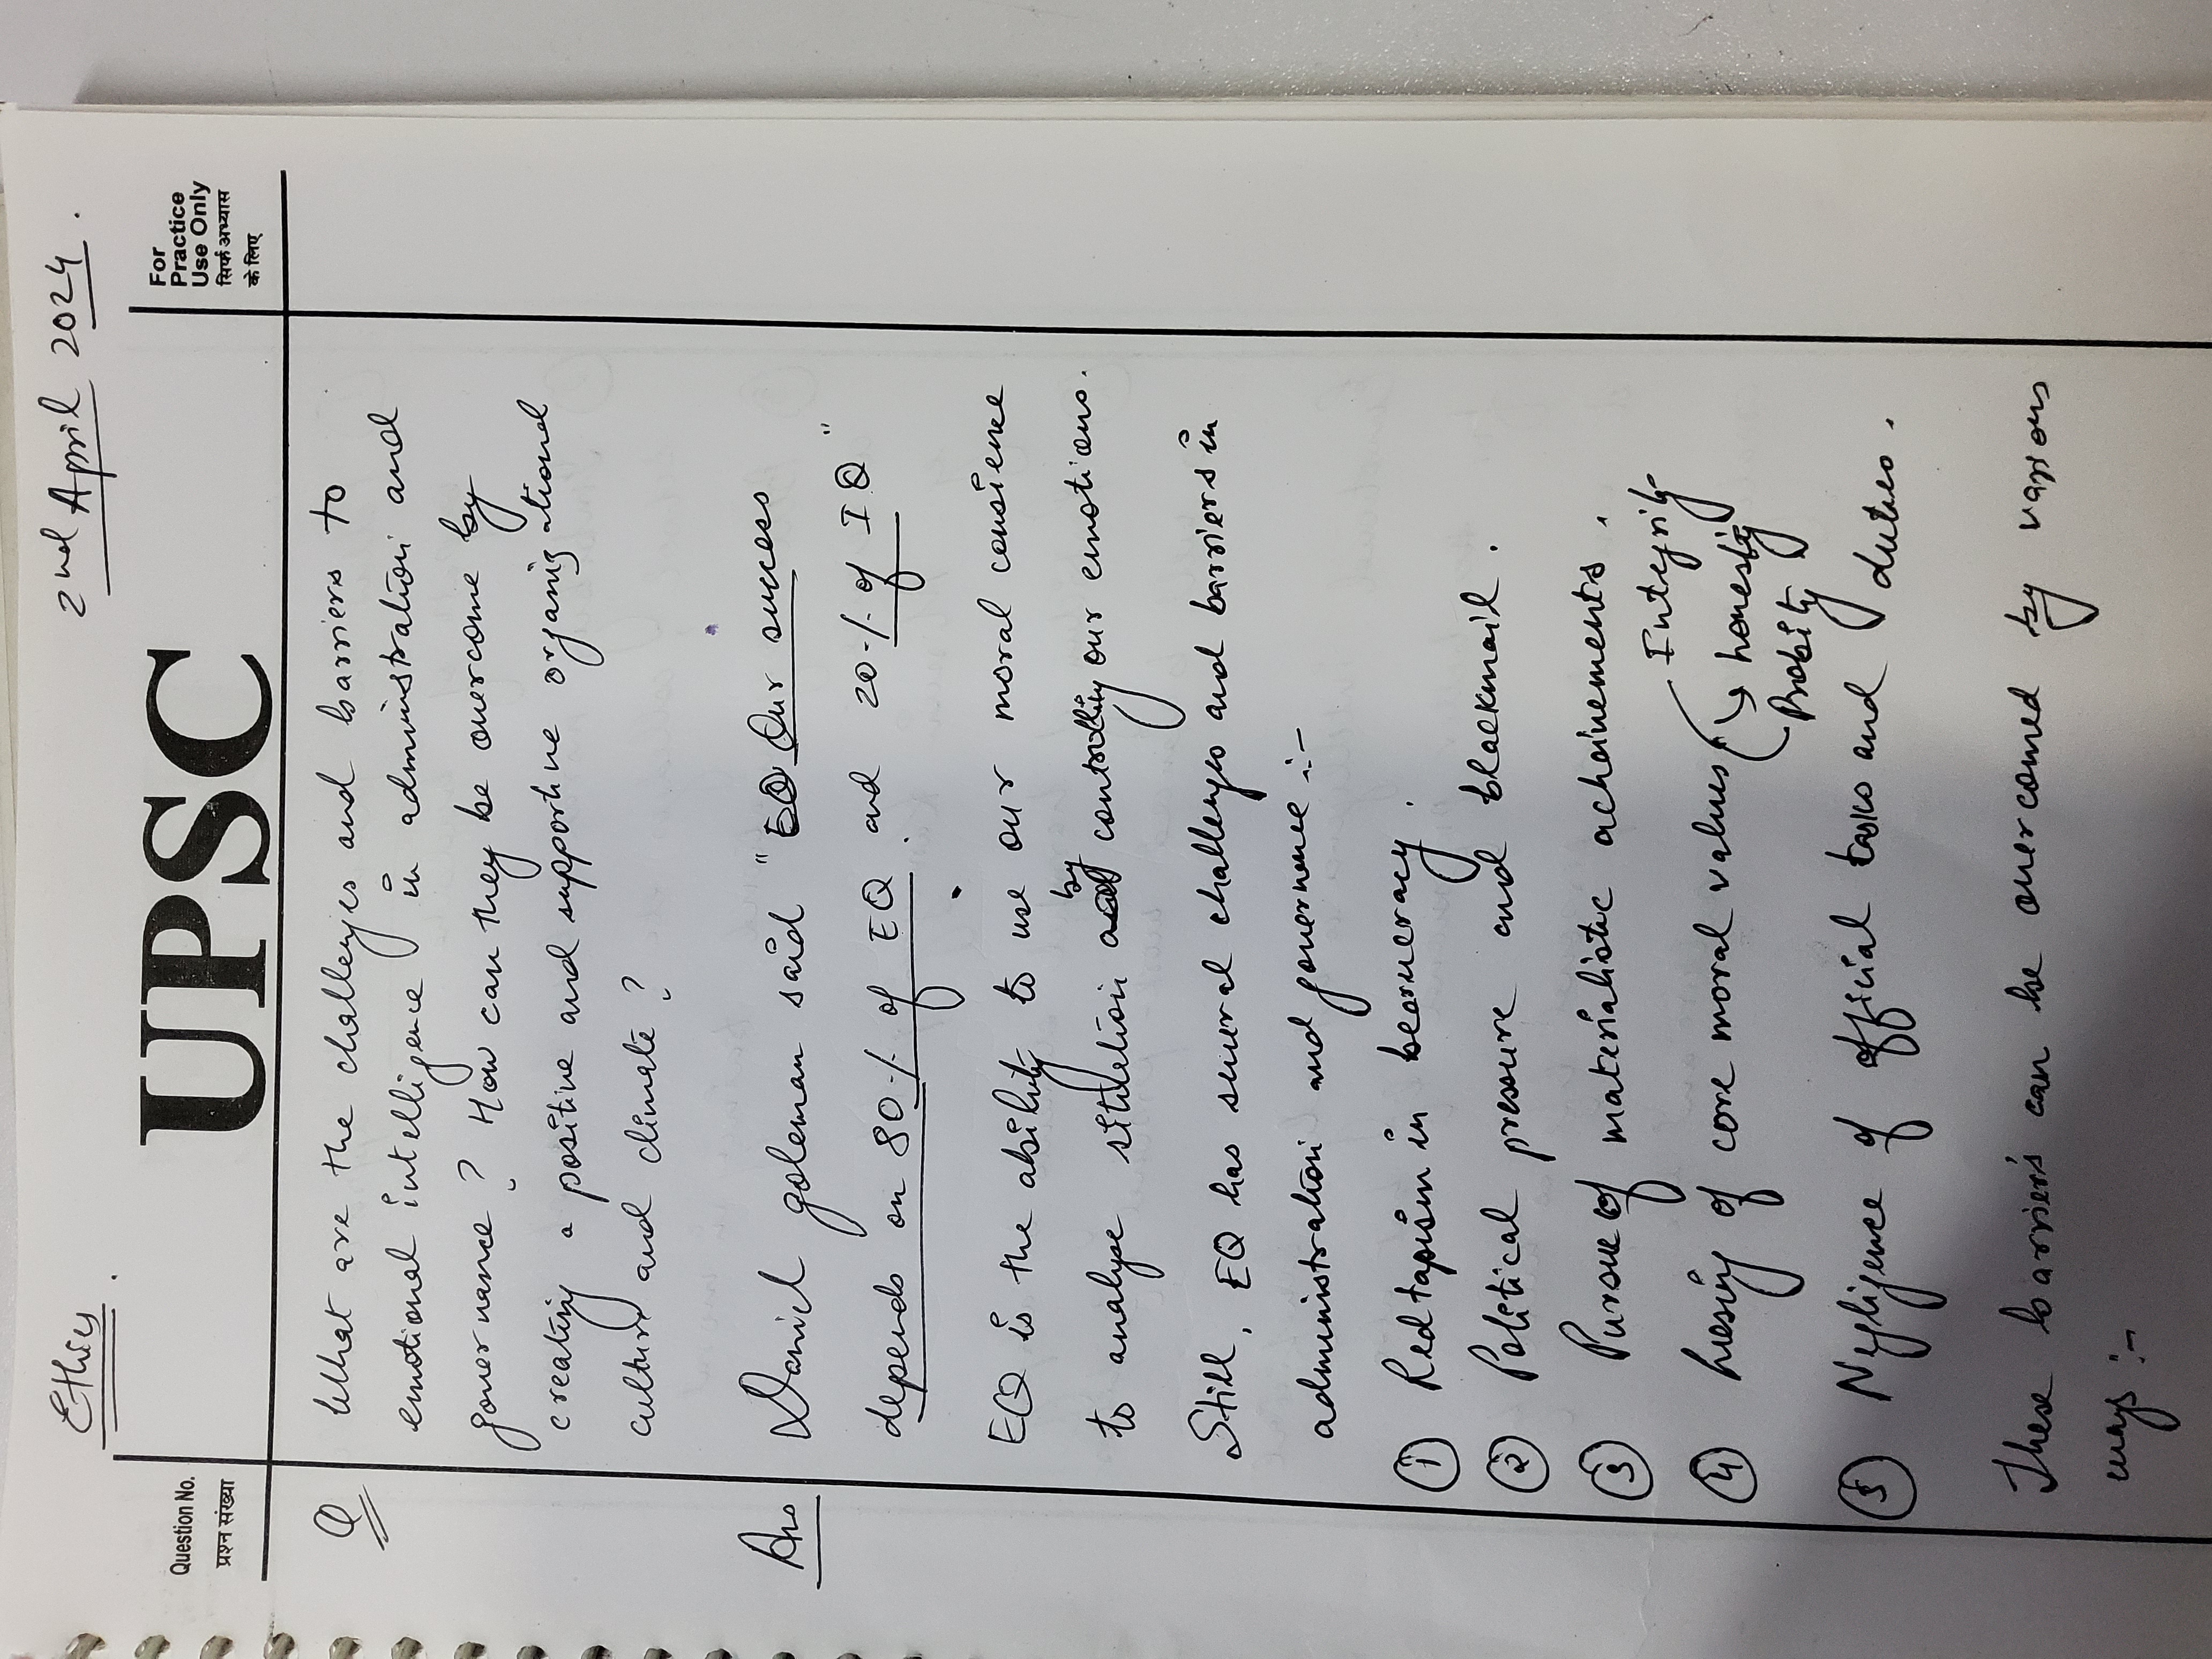 Ethics.
2nd April 2024.
Question No.
प्रश्न संख्या
UPSC
For
Practice
Use Only
सिर्फ अभ्यास
के लिए
Q What are the challenges and barriers to
emotional intelligence in administration and
governance? How can they be overcome by
creating a positive and supportive organizational
culture and climate?
Ans Daniel goleman said "EQ Our success
depends on 80% of EQ. and 20% of IQ"
EQ is the ability to use our moral consience
to analyse sitution by controlling our emotions.
Still, EQ has several challenges and barriers in
administration and governence :-
① Redtapism in bearucracy.
② Political pressure and blackmail.
③ Pursue of materialistic acheivements.
④ Loosing of core moral values → Integrity
→ honesty
Probity
⑤ Negligence of official tasks and duties.
These barriers can be overcomed by various
ways :-